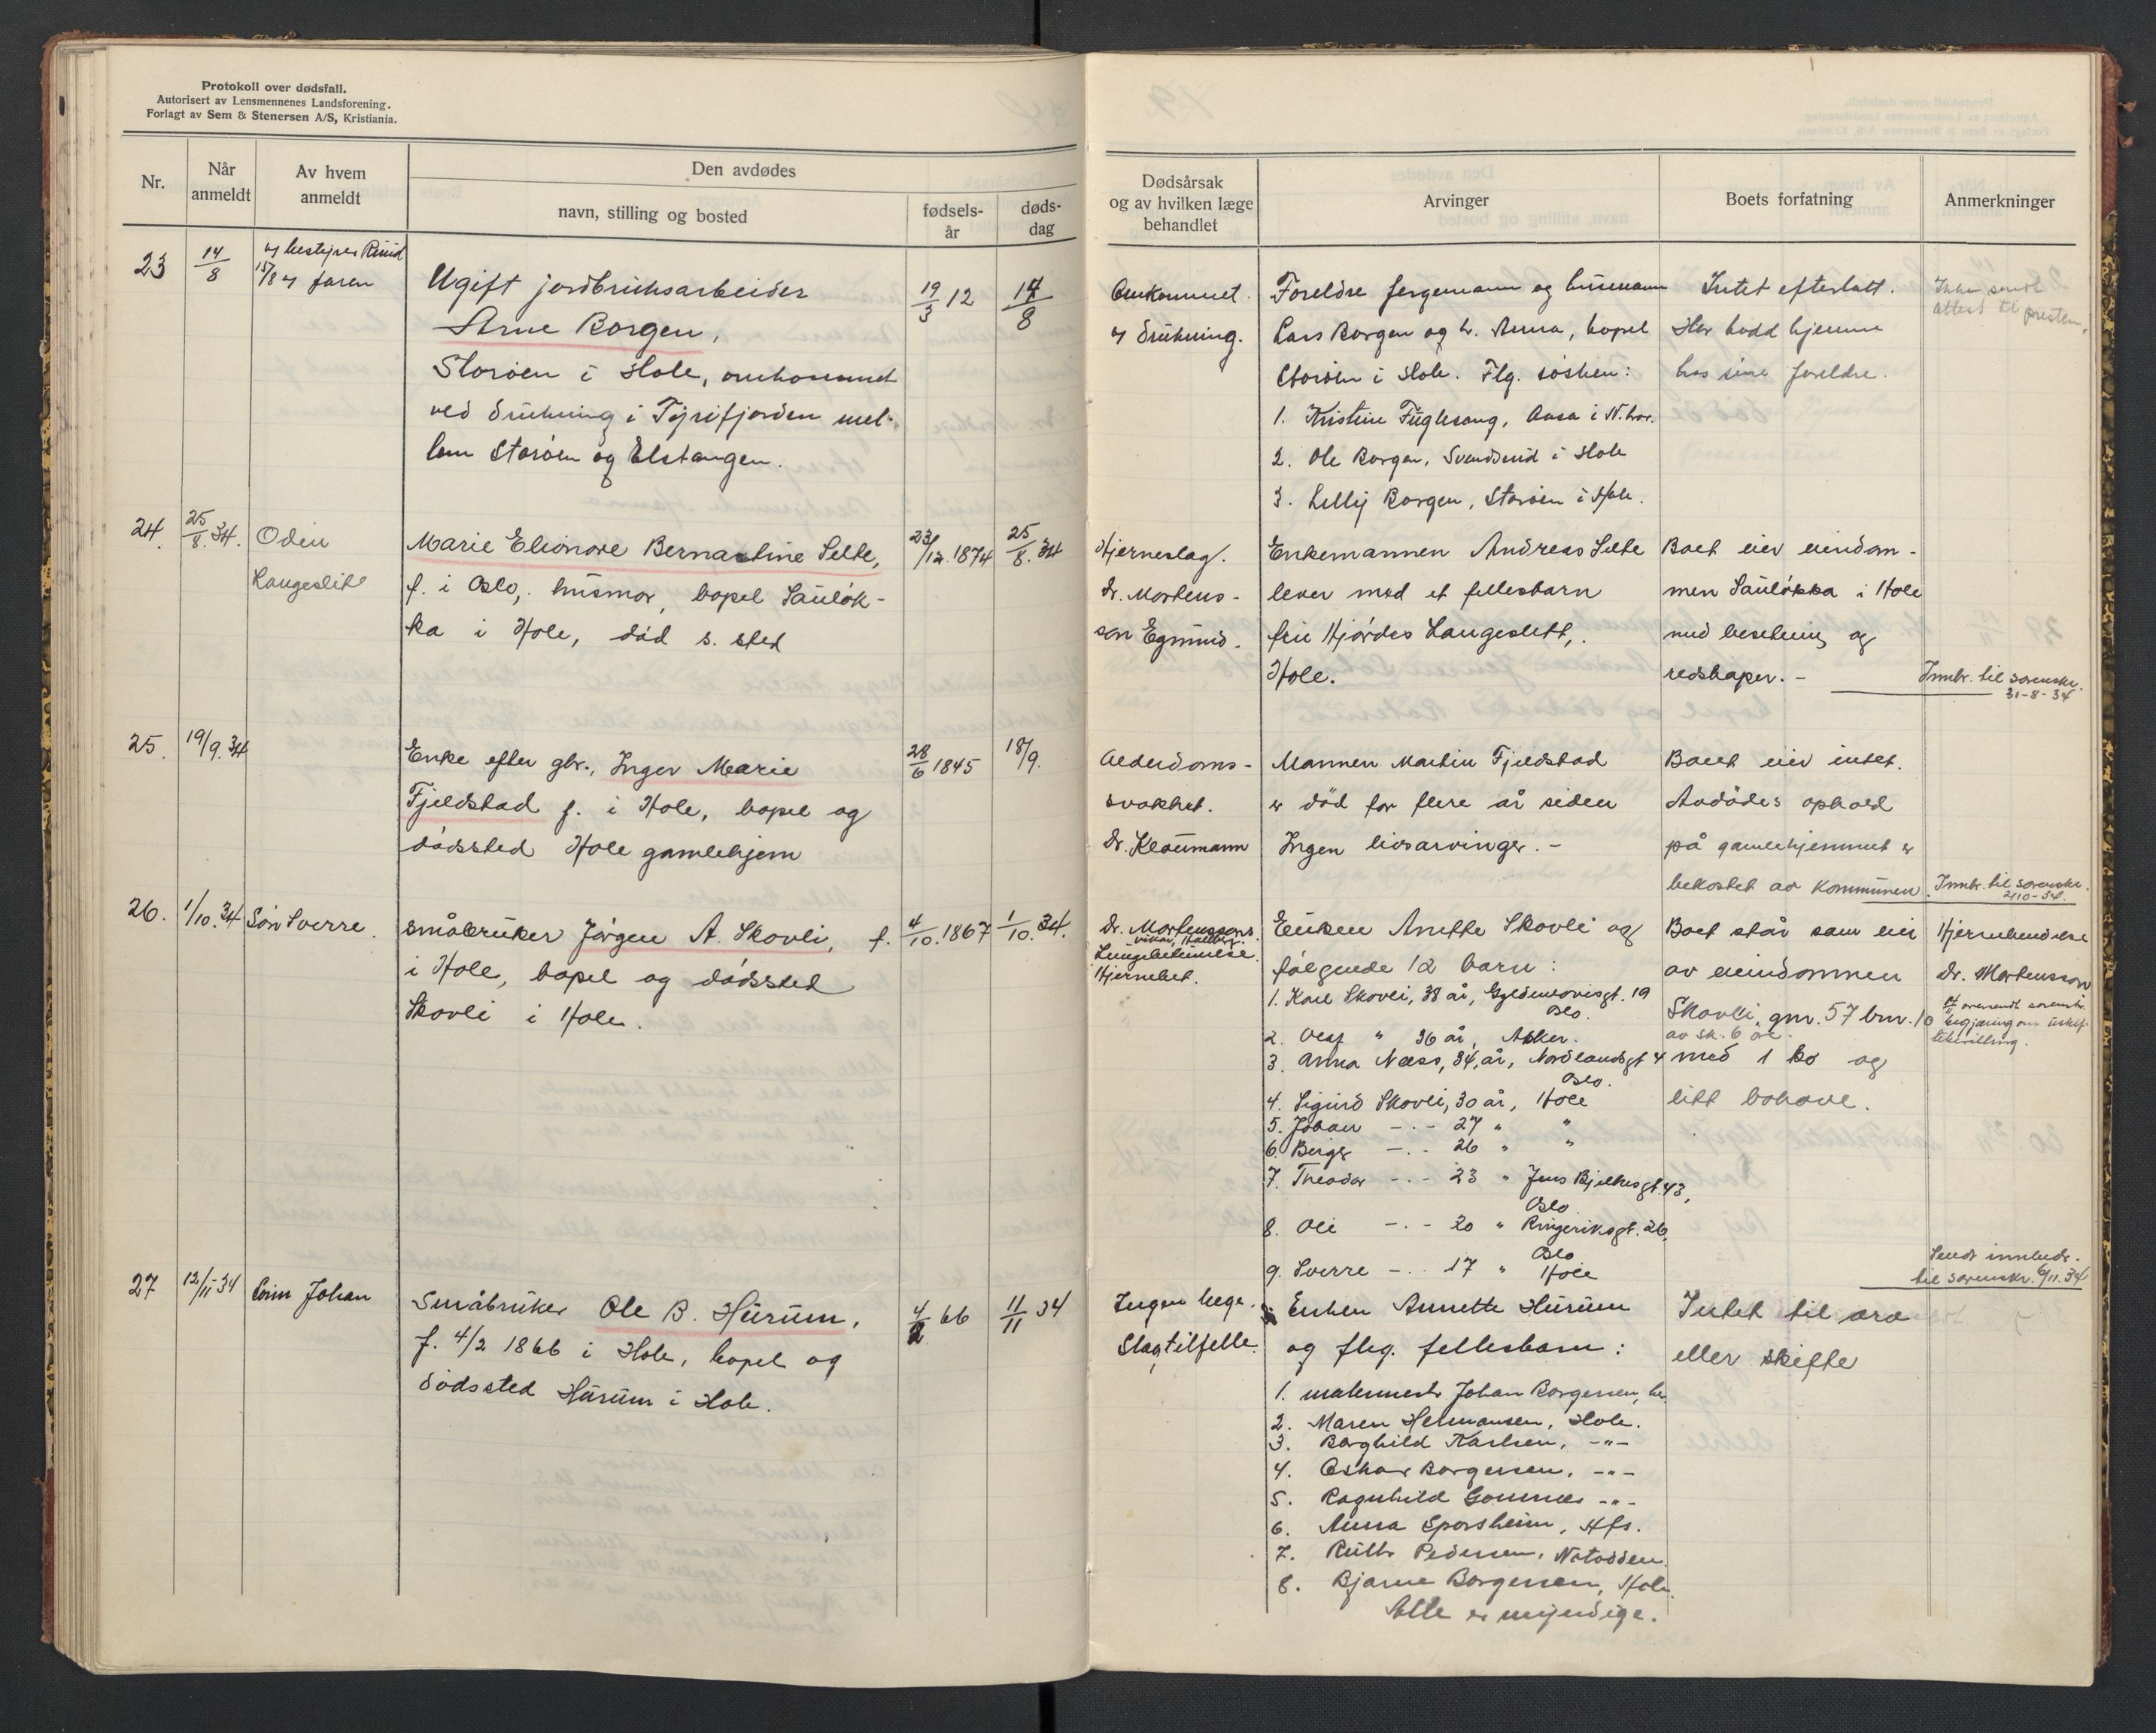 Protokoll over dødsfall.
Autorisert av Lensmennenes Landsforening.
Forlagt av Sem & Stenersen A/S, Kristiania.
Nr.
Når anmeldt
Av hvem anmeldt
Den avdødes
navn, stilling og bosted
fødsels-år
døds-dag
Dødsårsak og av hvilken læge behandlet
Arvinger
Boets forfatning
Anmerkninger
23
14/8
av bestyrer Ruud
15/8 av faren
Ugift jordbruksarbeider
Arne Borgen,
Storøen i Hole, omkommet
ved drukning i Tyrifjorden mel-
lem Storøen og Elstangen.
19/3 12
14/8
Omkommet
av drukning.
Foreldre fergemann og husmann
Lars Borgen og h. Anna, bopel
Storøen i Hole. Flg. søsken:
1. Kristine Fuglesang, Aasa i N.hov.
2. Ole Borgen, Svendsrud i Hole
3. Lelly Borgen, Storøen i Hole.
Intet efterlatt.
Har bodd hjemme
hos sine foreldre.
Ikke sendt
attest til presten.
24.
25/8. 34.
Odin
Laugeslite
Marie Elionore Bernantine Selte,
f. i Oslo, husmor, bopel Sauløk-
ka i Hole, død s. sted
23/12. 1874
25/8. 34
Hjerneslag.
dr. Mortens-
son Egnund.
Enkemannen Andreas Selte
lever med et fellesbarn
frue Hjørdis Laugeslett,
Hole.
Boet eier eiendom-
men Sauløkka i Hole
med besetning og
redskaper. -
Innbr. til sorenskr.
31-8-34
25.
19/9. 34
Enke efter gbr., Inger Marie
Fjeldstad f. i Hole, bopel og
dødssted Hole gamlehjem
28/6 1845
18/9.
Alderdoms-
svakhet.
dr. Klaumann
Mannen Martin Fjeldstad
er død for flere år siden
Ingen livsarvinger. -
Boet eier intet.
Avdødes ophold
på gamlehjemmet er
bekostet av kommunen.
Innbr. til sorenskr.
2/10-34.
26.
1/10. 34
Søn Sverre.
småbruker Jørgen A. Skovli, f.
i Hole, bopel og dødssted
Skovli i Hole.
4/10. 1867
1/10. 34.
dr. Mortenssons
vikar,
Lungebetennelse
Hjernebet.
Enken Anette Skovli og
følgende 12 barn:
1. Karl Skovli, 38 år, Gyldenløvesgt. 19
Oslo.
2. Olaf " 36 år, Aker.
3. Anna Næss, 34 år, Nordlandsgt 4
Oslo.
4. Sigurd Skovli, 30 år, Hole
5. Johan -.- 27 " "
6. Birger -.- 26 " "
7. Theodor -.- 23 " Jens Bjelkesgt. 43,
Oslo
8. Ole -.- 20 " Ringeriksgt. 26,
Oslo
9. Sverre -.- 17 " Hole
Boet står som eier
av eiendommen
Skovli, gnr. 57 bnr. 10
av sk. 6 øre
med 1 ko og
litt bohave.
Hjernebetendelse
dr. Mortensson
oversendt sorenskr.
begjæring om uskif-
tebevilling.
Sendt innberedn.
til sorenskr. 6/11. 34
27
12/11-34
Sønn Johan
Småbruker Ole B. Hurum,
f. 4/2 1866 i Hole, bopel og
dødssted Hurum i Hole.
4/2 66
11/11 34
Ingen læge.
Slagtilfelle.
Enken Annette Hurum
og flg. fellesbarn:
1. malermestr Johan Borgersen, her
2. Maren Hermansen, Hole.
3. Borghild Karlsen, -"-
4. Oskar Borgersen, -"-
5. Ragnhild Gomnæs -"-
6. Anna Sporsheim, Hfs.
7. Ruth Pedersen, Notodden.
8. Bjarne Borgersen, Hole.
Alle er myndige.
Intet til arv
eller skifte